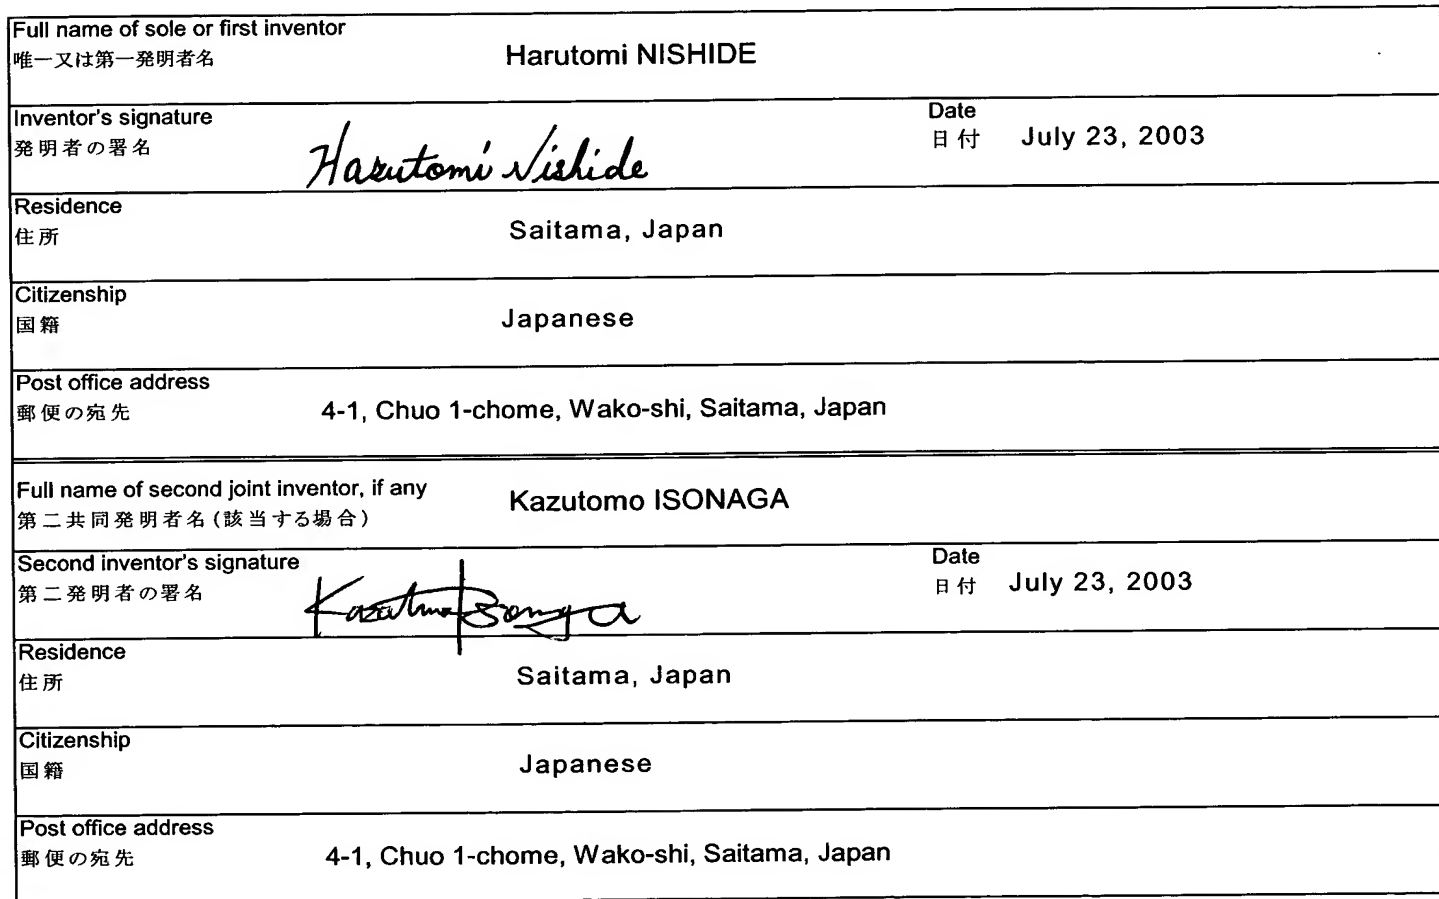 Full name of sole or first inventor
唯一又は第一発明者名
Harutomi NISHIDE
Inventor's signature
発明者の署名
Harutomi Nishide
Date
日付 July 23, 2003
Residence
住所
Saitama, Japan
Citizenship
国籍
Japanese
Post office address
郵便の宛先
4-1, Chuo 1-chome, Wako-shi, Saitama, Japan
Full name of second joint inventor, if any
第二共同発明者名(該当する場合)
Kazutomo ISONAGA
Second inventor's signature
第二発明者の署名
Kazutomo Isonaga
Date
日付 July 23, 2003
Residence
住所
Saitama, Japan
Citizenship
国籍
Japanese
Post office address
郵便の宛先
4-1, Chuo 1-chome, Wako-shi, Saitama, Japan